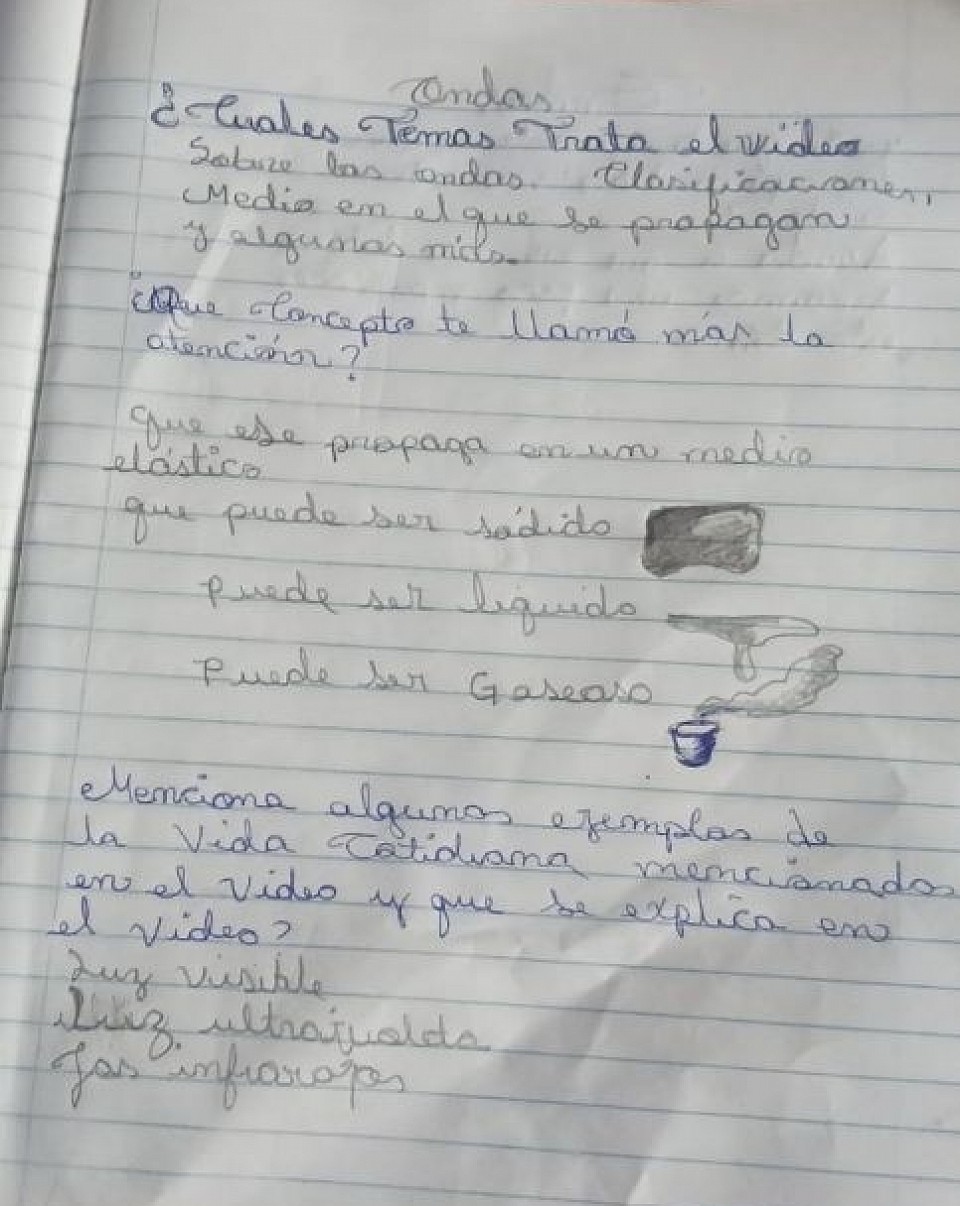 Ondas
¿Cuales Temas Trata el video
Sobre las ondas. Clasificaciones,
Medio en el que se propagan
y algunas mits.
¿Que Concepto te llamó más la
atención?
que ese propaga en un medio
elástico
que puede ser sódido
Puede ser líquido
Puede ser Gaseoso
Menciona algunos ejemplos de
la Vida Cotidiana mencionados
en el video y que se explica en
el video?
Luz visible
Luz
infrarojos